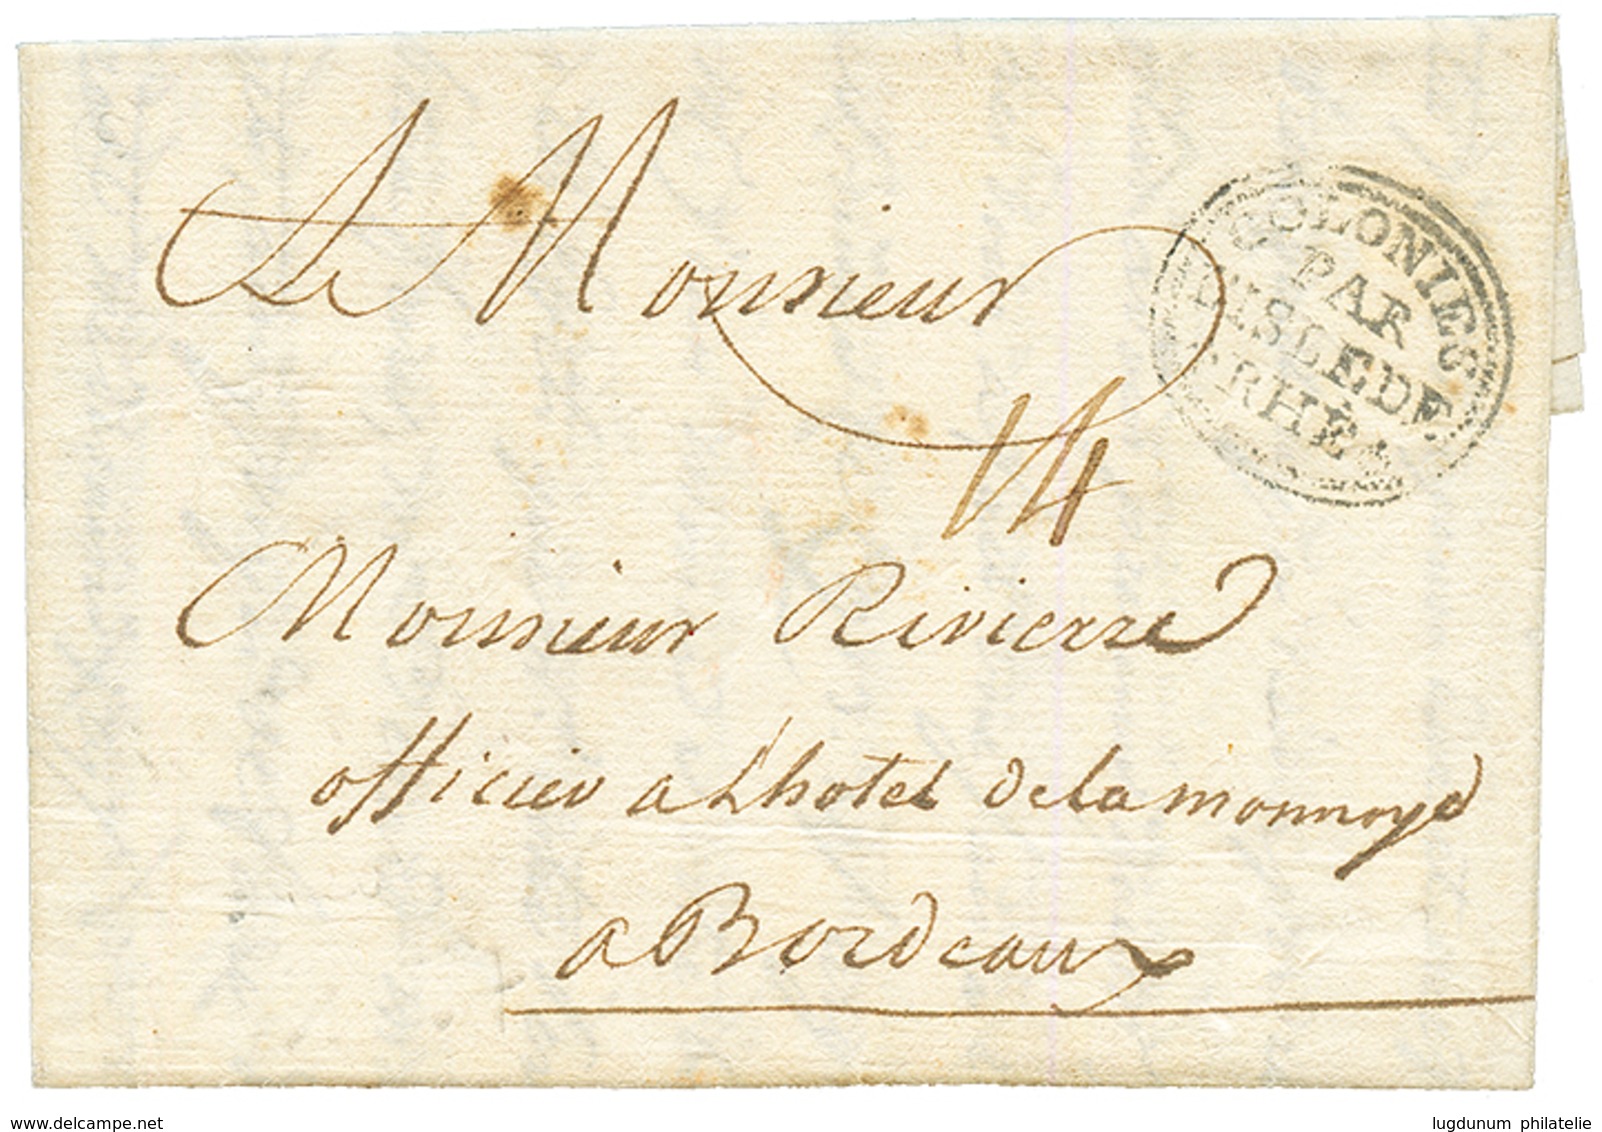 A Monsieur
14
COLONIES
PAR
L'ISLE DE
RHÉ
Monsieur Rivierre
officier a Lhotel de la monnoye
a Bordeaux
www.delcampe.net
lugdunum philatelie